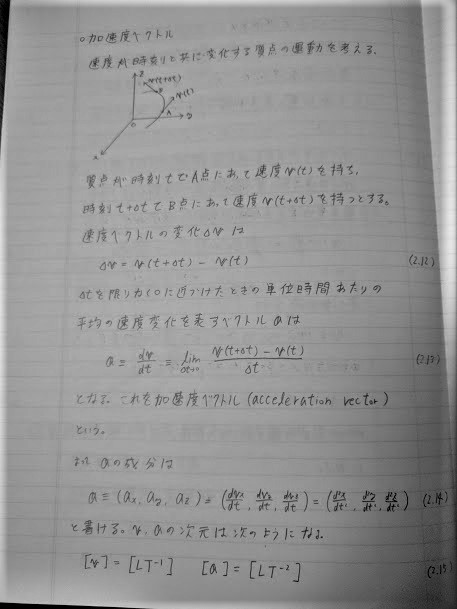 ○加速度ベクトル
速度が時刻と共に変化する質点の運動を考える、
z
v(t+Δt)
B
v(t)
A
O
y
x
質点が時刻tでA点にあって速度v(t)を持ち、
時刻t+ΔtでB点にあって速度v(t+Δt)を持つとする。
速度ベクトルの変化Δvは
Δv = v(t+Δt) - v(t) (2.12)
Δtを限りなく0に近づけたときの単位時間あたりの
平均の速度変化を表すベクトルaは
a = dv/dt = lim Δt→0 (v(t+Δt) - v(t))/Δt (2.13)
となる。これを加速度ベクトル(acceleration vector)
という。
aの成分は
a = (ax, ay, az) = (dvx/dt, dvy/dt, dvz/dt) = (d²x/dt², d²y/dt², d²z/dt²) (2.14)
と書ける。v, aの次元は次のようになる
[v] = [LT⁻¹] [a] = [LT⁻²] (2.15)